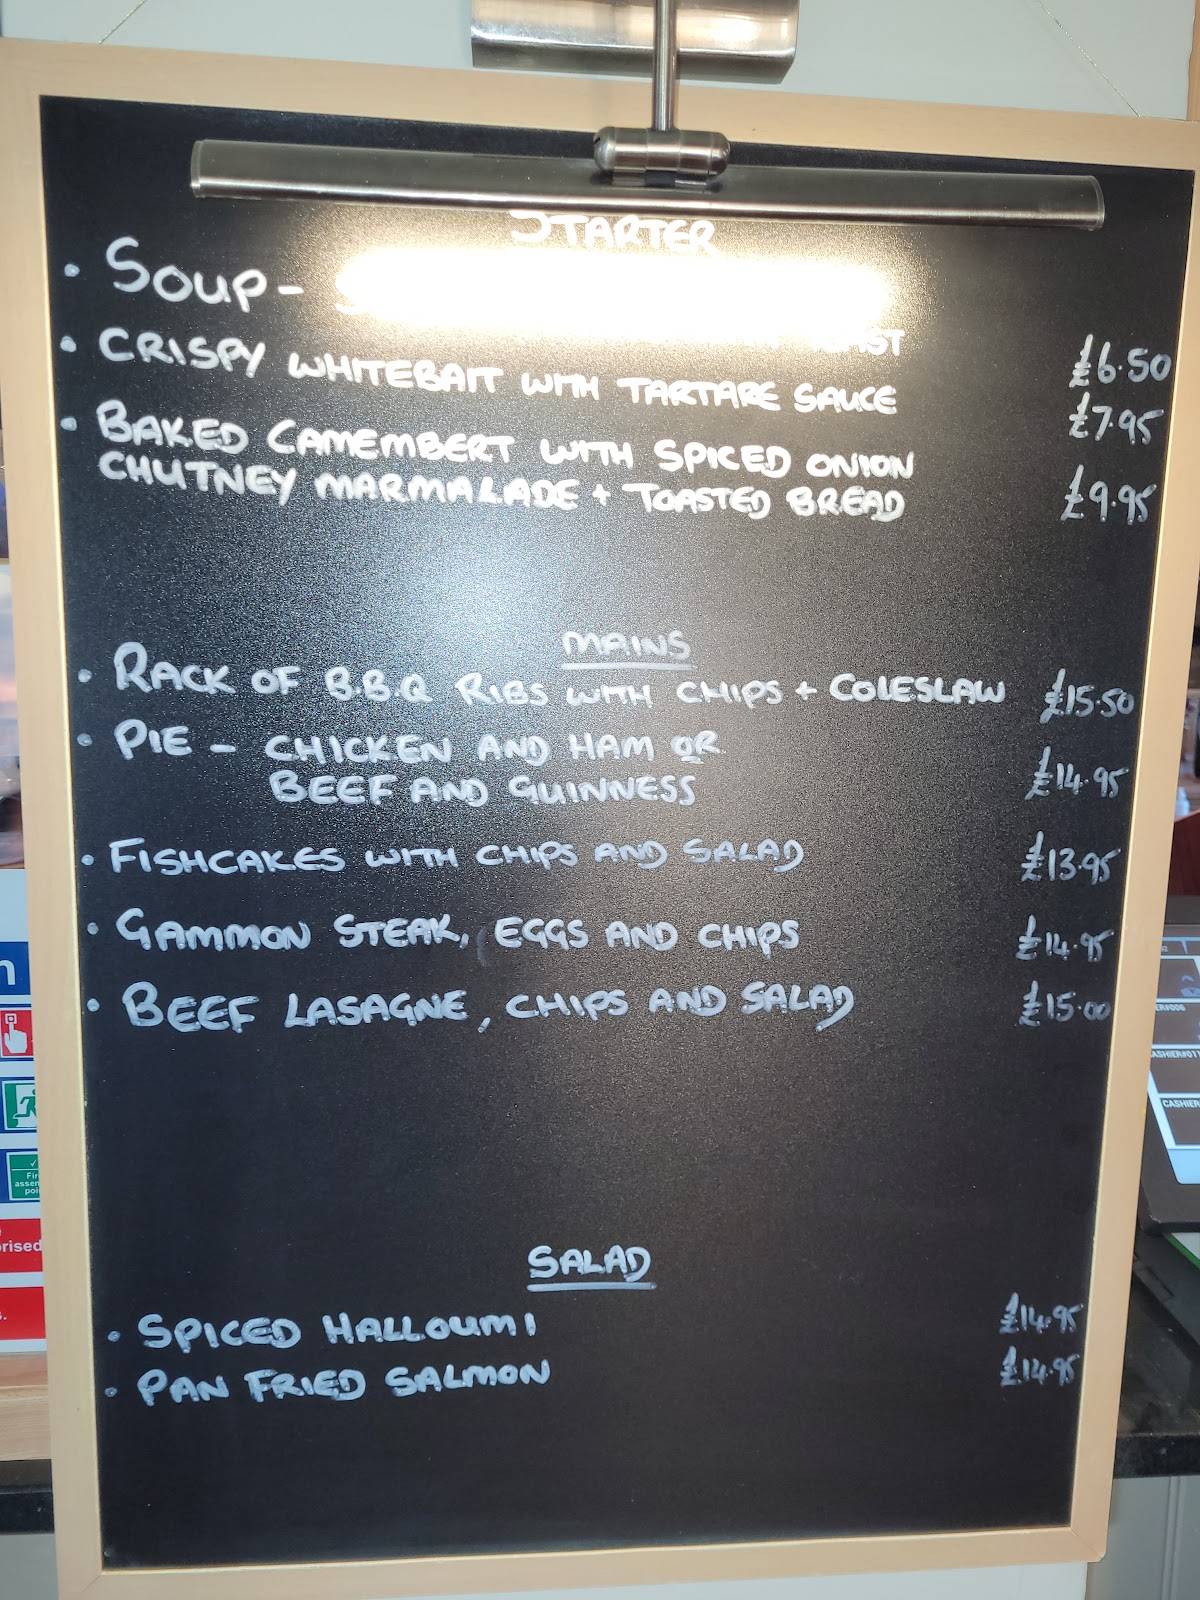 STARTER
• SOUP -
• CRISPY WHITEBAIT WITH TARTARE SAUCE
£6.50
£7.95
• BAKED CAMEMBERT WITH SPICED ONION
CHUTNEY MARMALADE + TOASTED BREAD £9.95
MAINS
• RACK OF B.B.Q RIBS WITH CHIPS + COLESLAW £15.50
• PIE - CHICKEN AND HAM OR
BEEF AND GUINNESS £14.95
• FISHCAKES WITH CHIPS AND SALAD £13.95
• GAMMON STEAK, EGGS AND CHIPS £14.95
• BEEF LASAGNE, CHIPS AND SALAD £15.00
SALAD
• SPICED HALLOUMI £14.95
• PAN FRIED SALMON £14.95